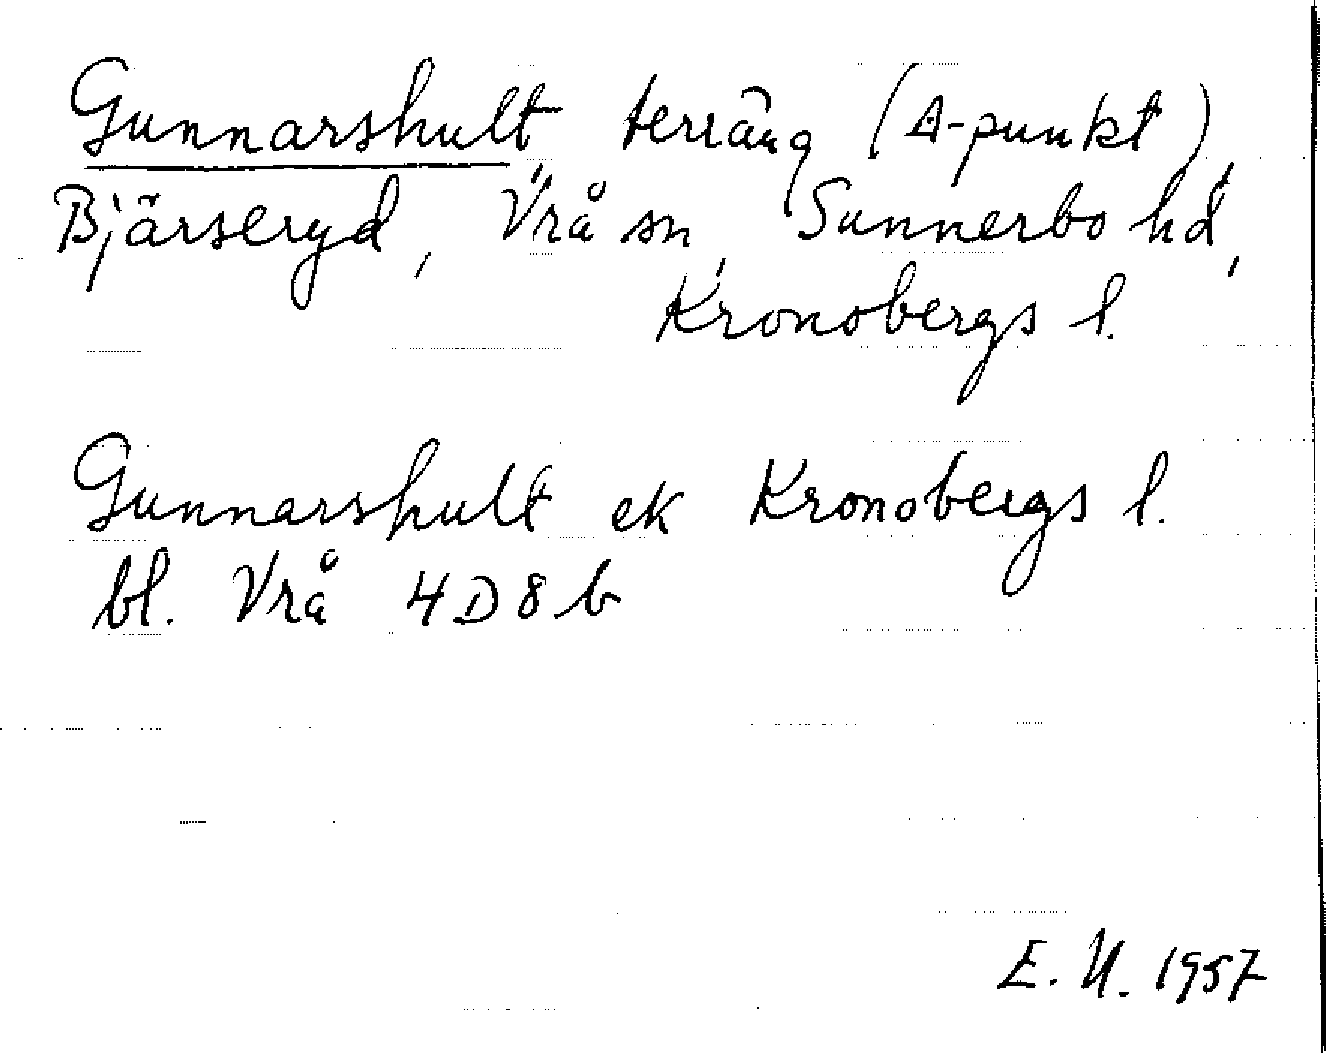 Gunnarshult, terräng (A-punkt),
Bjärseryd, Vrå sn, Sunnerbo hd,
Kronobergs l.
Gunnarshult ek Kronobergs l.
bl. Vrå 4D8b
E. U. 1957